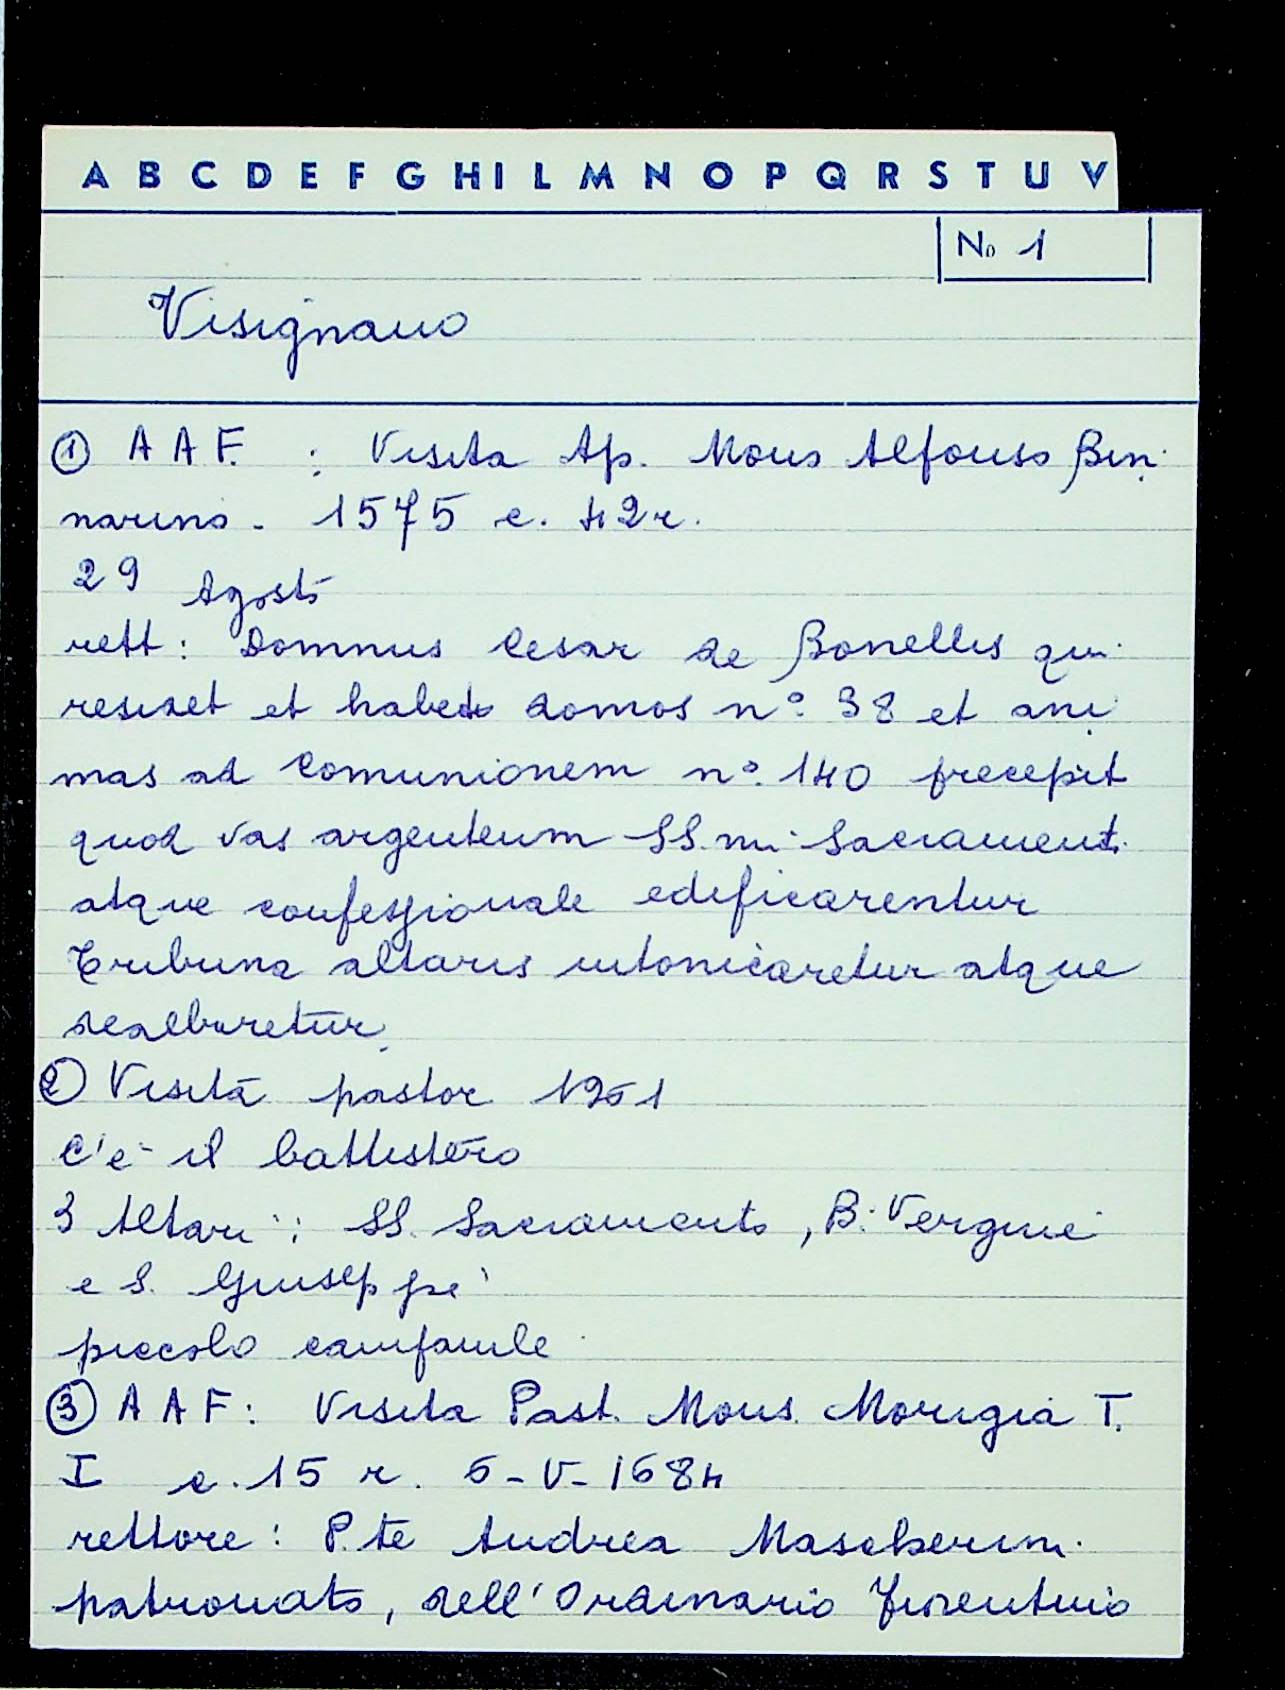 A B C D E F G H I L M N O P Q R S T U V
No 1
Visignano
① A A F. : Visita Ap. Mons Alfonso Bin
narino - 1575 c. 42r.
29 Agosto
rett : Domnus Cesar de Bonellis qui
residet et habet domos n° 38 et ani
mas ad Comunionem n° 140 precepit
quod vas argenteum SS.mi Sacramenti
atque confessionale edificarentur
Tribuna altaris intonicaretur atque
dealbaretur.
② Visita pastor 1951
c'è il battistero
3 Altari : SS. Sacramento, B. Vergine
e S. Giuseppe
piccolo campanile
③ A A F : Visita Past. Mons. Morigia T.
I c. 15 r. 6-V-1684
rettore : P.te Andrea Mascherini
patronato, dell'Ordinario fiorentino